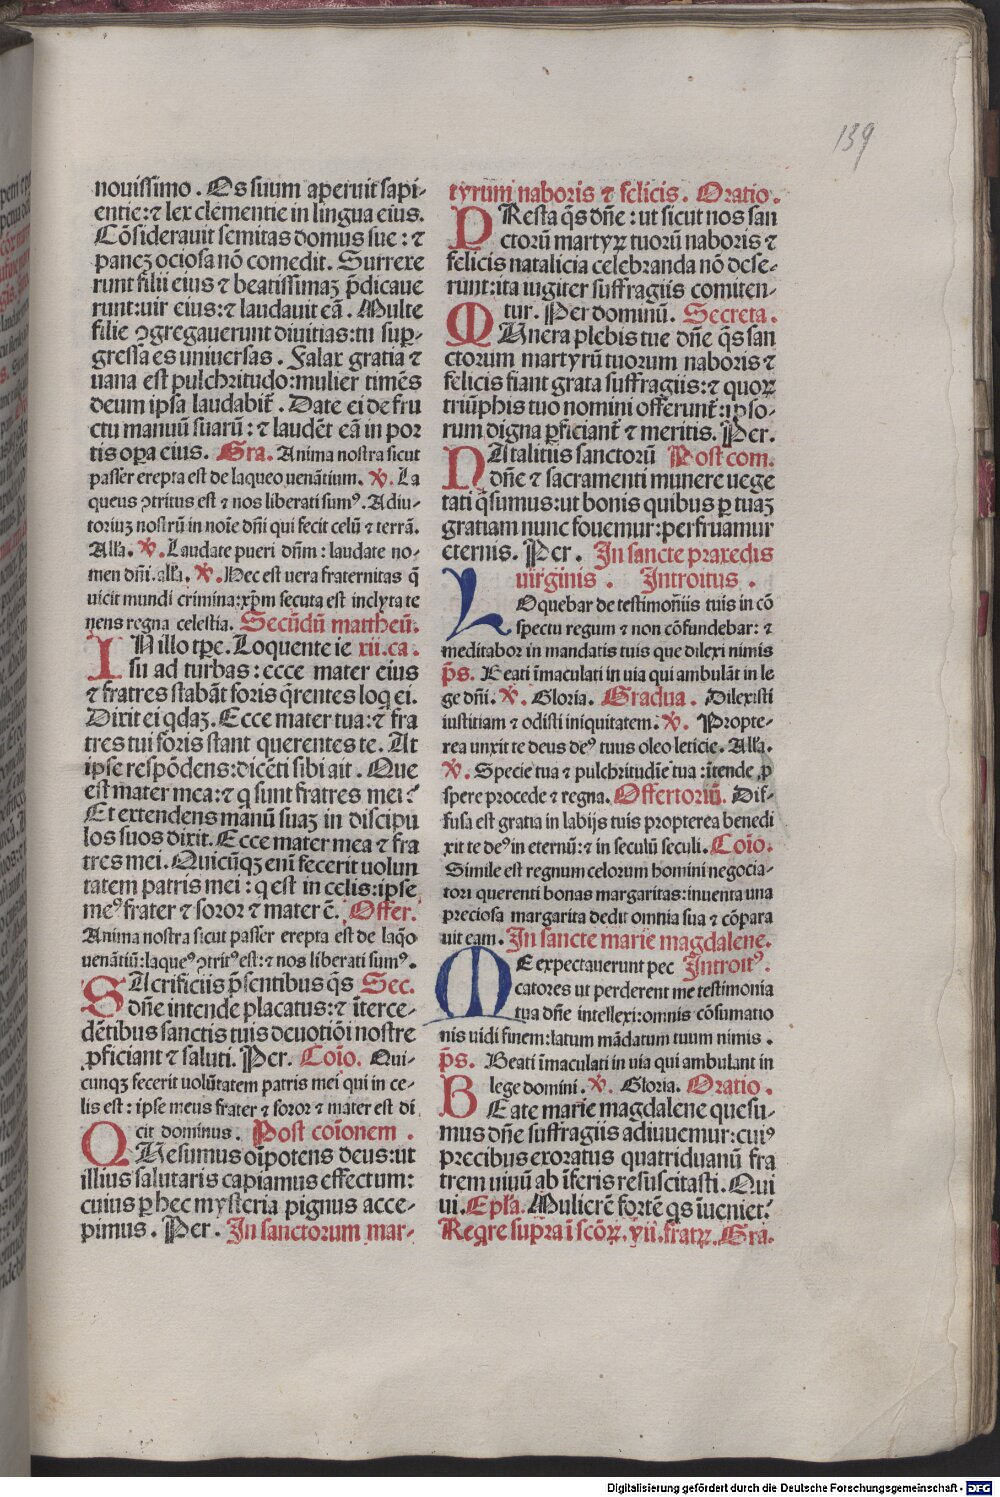 139
nouissimo. Os suum aperuit sapi-
entie: ⁊ lex clementie in lingua eius.
Cōsiderauit semitas domus sue: ⁊
paneꝫ ociosa nō comedit. Surrexe
runt filii eius ⁊ beatissimaꝫ p̄dicaue
runt: uir eius: ⁊ laudauit eā. Multe
filie ꝯgregauerunt diuitias: tu sup̱-
gressa es uniuersas. Fallax gratia ⁊
uana est pulchritudo: mulier timēs
deum ipsa laudabit̄. Date ei de fru
ctu manuū suarū: ⁊ laudēt eā in por
tis oꝑa eius. Gra. Anima nostra sicut
passer erepta est de laqueo uenātium. ℣. La
queus ꝯtritus est ⁊ nos liberati sumꝰ. Adiu-
toriuꝫ nostrū in noīe dn̄i qui fecit celū ⁊ terrā.
All'a. ℣. Laudate pueri dn̄m: laudate no-
men dn̄i. all'a. ℣. Hec est uera fraternitas q̄
uicit mundi crimina: xp̄m secuta est inclyta te
nens regna celestia. Secūdū mattheū.
IN illo tꝑe. Loquente ie xii. ca.
su ad turbas: ecce mater eius
⁊ fratres stabāt foris q̄rentes loq̇ ei.
Dixit ei q̇daꝫ. Ecce mater tua: ⁊ fra
tres tui foris stant querentes te. At
ipse respōdens: dicēti sibi ait. Que
est mater mea: ⁊ q̇ sunt fratres mei?
Et extendens manū suaꝫ in discipu
los suos dixit. Ecce mater mea ⁊ fra
tres mei. Quicūqꝫ enī fecerit uolun
tatem patris mei: q̇ est in celis: ipse
meꝰ frater ⁊ soror ⁊ mater ē. Offer.
Anima nostra sicut passer erepta est de laq̇o
uenātiū: laqueꝰ ꝯtritꝰ est: ⁊ nos liberati sumꝰ.
SAcrificiis p̄sentibus q̄s Sec.
dn̄e intende placatus: ⁊ īterce-
dētibus sanctis tuis deuotiōi nostre
ꝓficiant ⁊ saluti. Per. Coīo. Qui-
cunqꝫ fecerit uolūtatem patris mei qui in ce-
lis est: ipse meus frater ⁊ soror ⁊ mater est di
cit dominus. Post coīonem.
QUesumus oīpotens deus: ut
illius salutaris capiamus effectum:
cuius ꝑ hec mysteria pignus acce-
pimus. Per. In sanctorum mar-
tyrum naboris ⁊ felicis. Oratio.
PResta q̄s dn̄e: ut sicut nos san
ctorū martyꝝ tuorū naboris ⁊
felicis natalicia celebranda nō dese-
runt: ita iugiter suffragiis comiten-
tur. Per dominū. Secreta.
MUnera plebis tue dn̄e q̄s san
ctorum martyrū tuorum naboris ⁊
felicis fiant grata suffragiis: ⁊ quoꝝ
triūphis tuo nomini offerunt̄: ipso-
rum digna ꝑficiant̄ ⁊ meritis. Per.
NAtalitiis sanctorū Post com.
dn̄e ⁊ sacramenti munere uege
tati q̄sumus: ut bonis quibus ꝑ tuaꝫ
gratiam nunc fouemur: perfruamur
eternis. Per. In sancte praxedis
uirginis. Introitus.
LOquebar de testimoniis tuis in cō
spectu regum ⁊ non cōfundebar: ⁊
meditabor in mandatis tuis que dilexi nimis
p̄s. Beati īmaculati in uia qui ambulāt in le
ge dn̄i. ℣. Gloria. Gradua. Dilexisti
iustitiam ⁊ odisti iniquitatem. ℣. Propte-
rea unxit te deus deꝰ tuus oleo leticie. All'a.
℣. Specie tua ⁊ pulchritudīe tua: ītende ꝓ
spere procede ⁊ regna. Offertoriū. Dif-
fusa est gratia in labijs tuis propterea benedi
xit te deꝰ in eternū: ⁊ in seculū seculi. Coīo.
Simile est regnum celorum homini negocia-
tori querenti bonas margaritas: inuenta una
preciosa margarita dedit omnia sua ⁊ cōpara
uit eam. In sancte marie magdalene.
ME expectauerunt pec Introitꝰ.
catores ut perderent me testimonia
tua dn̄e intellexi: omnis cōsumatio
nis uidi finem: latum mādatum tuum nimis.
p̄s. Beati īmaculati in uia qui ambulant in
lege domini. ℣. Gloria. Oratio.
BEate marie magdalene quesu-
mus dn̄e suffragiis adiuuemur: cuiꝰ
precibus exoratus quatriduanū fra
trem uiuū ab īferis resuscitasti. Qui
ui. Epl'a. Mulierē fortē q̇s īueniet?
Reqr̄e supra ī scōꝝ. vii. fratꝝ. Gra.
Digitalisierung gefördert durch die Deutsche Forschungsgemeinschaft - DFG